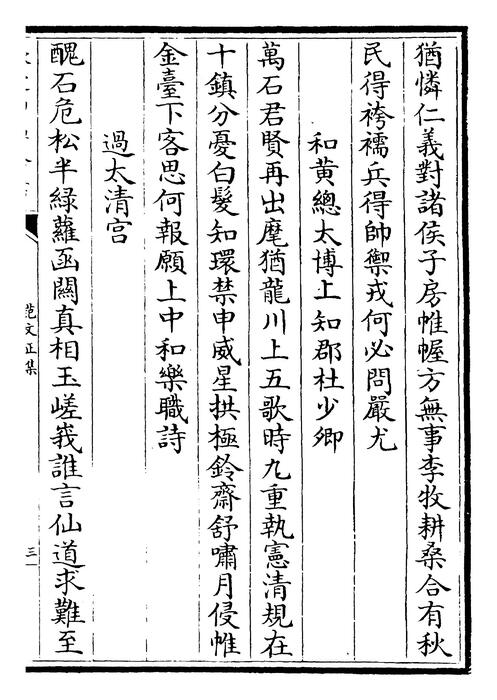 猶憐仁義對諸侯子房帷幄方無事李牧耕桑合有秋
民得袴襦兵得帥禦戎何必問嚴尤
和黃總太博上知郡杜少卿
萬石君賢再出麾猶龍川上五歌時九重執憲清規在
十鎮分憂白髮知環禁申威星拱極鈴齋舒嘯月侵帷
金臺下客思何報願上中和樂職詩
過太清宫
醜石危松半綠蘿函關真相玉嵯峩誰言仙道求難至
范文正集
三